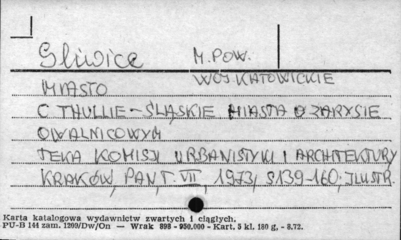 Gliwice M. POW.
WOJ KATOWICKIE
MIASTO
C THULLIE - ŚLĄSKIE MIASTA O ZARYSIE
OWALNICOWYM
TEKA KOMISJI URBANISTYKI I ARCHITEKTURY
KRAKÓW, PAN, T. VII, 1973, S 139-160, ILUSTR.
Karta katalogowa wydawnictw zwartych i ciągłych.
PU-B 144 zam. 1200/Dw/On — Wrak 898 - 950.000 - Kart. 5 kl. 180 g, - 8.72.